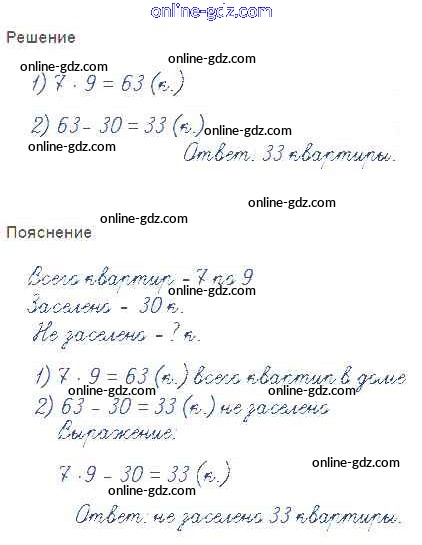 online-gdz.com
Решение
online-gdz.com
online-gdz.com
1) 7 · 9 = 63 (к.)
2) 63 - 30 = 33 (к.)
online-gdz.com
online-gdz.com
Ответ: 33 квартиры.
online-gdz.com
online-gdz.com
Пояснение
Всего квартир - 7 по 9
online-gdz.com
Заселено - 30 к.
Не заселено - ? к.
online-gdz.com
1) 7 · 9 = 63 (к.) всего квартир в доме
2) 63 - 30 = 33 (к.) не заселено
online-gdz.com
Выражение:
online-gdz.com
7 · 9 - 30 = 33 (к.)
online-gdz.com
Ответ: не заселено 33 квартиры.
online-gdz.com